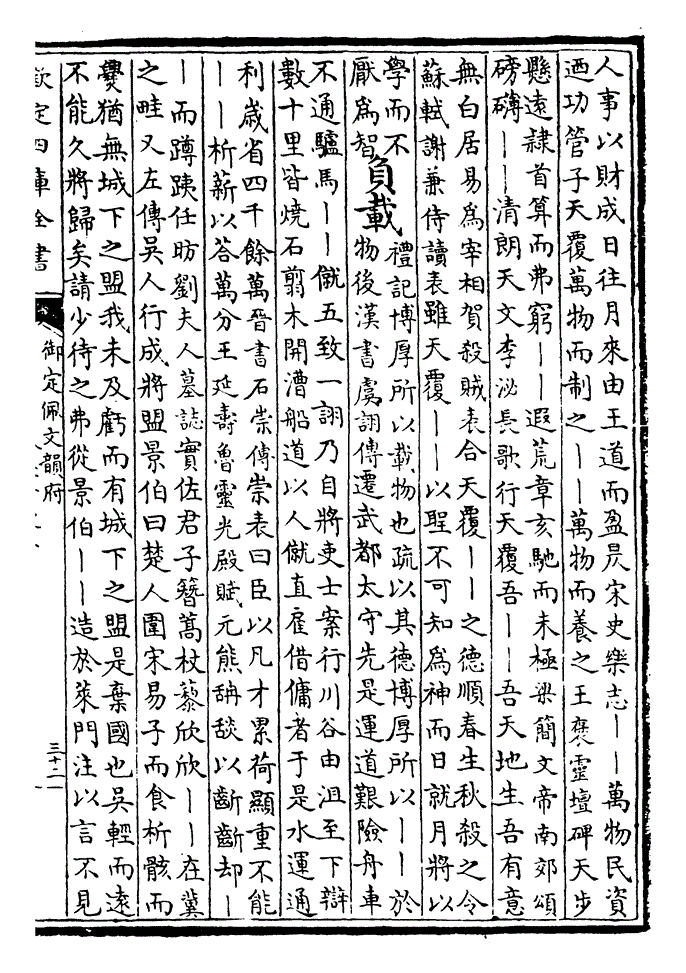 人事以財成日往月來由王道而盈昃宋史樂志——萬物民資
迺功管子天覆萬物而制之——萬物而養之王褒靈壇碑天步
懸遠隷首算而弗窮——遐荒章亥馳而未極梁簡文帝南郊頌
磅礴——清朗天文李泌長歌行天覆吾——吾天地生吾有意
無白居易爲宰相賀殺賊表合天覆——之德順春生秋殺之令
蘇軾謝兼侍讀表雖天覆——以聖不可知爲神而日就月將以
學而不
厭爲智
負載
禮記博厚所以載物也疏以其德博厚所以——於
物後漢書虞詡傳遷武都太守先是運道艱險舟車
不通驢馬——僦五致一詡乃自將吏士案行川谷由沮至下辯
數十里皆燒石翦木開漕船道以人僦直雇借傭者于是水運通
利歲省四千餘萬晉書石崇傳崇表曰臣以凡才累荷顯重不能
——析薪以荅萬分王延壽魯靈光殿賦元熊舑舕以齗齗却—
—而蹲跠任昉劉夫人墓誌實佐君子簪蒿杖藜欣欣——在冀
之畦又左傳吳人行成將盟景伯曰楚人圍宋易子而食析骸而
爨猶無城下之盟我未及虧而有城下之盟是棄國也吳輕而遠
不能久將歸矣請少待之弗從景伯——造於萊門注以言不見
欽定四庫全書
御定佩文韻府
三十二